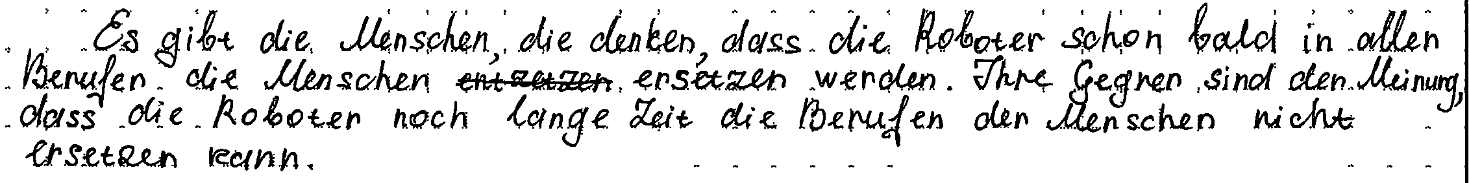 Es gibt die Menschen, die denken, dass die Roboter schon bald in allen
Berufen die Menschen entzetzen ersetzen werden. Ihre Gegner sind der Meinung,
dass die Roboter noch lange Zeit die Berufen der Menschen nicht
ersetzen kann.